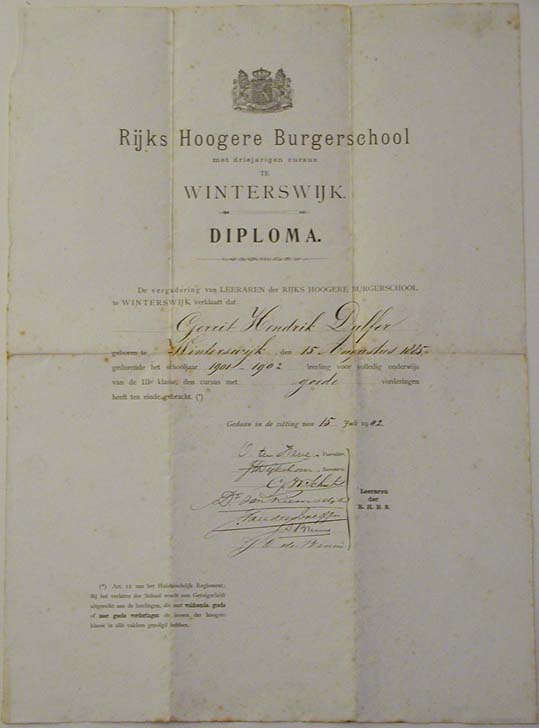 Rijks Hoogere Burgerschool
met driejarigen cursus
TE
WINTERSWIJK.
DIPLOMA.
De vergadering van LEERAREN der RIJKS HOOGERE BURGERSCHOOL
te WINTERSWIJK verklaart dat
Gerrit Hendrik Dulfer
geboren te Winterswijk, den 15 Augustus 1885,
gedurende het schooljaar 1901-1902 leerling voor volledig onderwijs
van de IIIe klasse, den cursus met goede vorderingen
heeft ten einde gebracht. (*)
Gedaan in de zitting van 15 Juli 1902
ten Have
de Bruin
Leeraren
der
R. H. B. S.
(*) Art. 12 van het Huishoudelijk Reglement:
Bij het verlaten der School wordt een Getuigschrift
uitgereikt aan de leerlingen, die met voldoende, goede
of zeer goede vorderingen de lessen der hoogste
klasse in alle vakken gevolgd hebben.